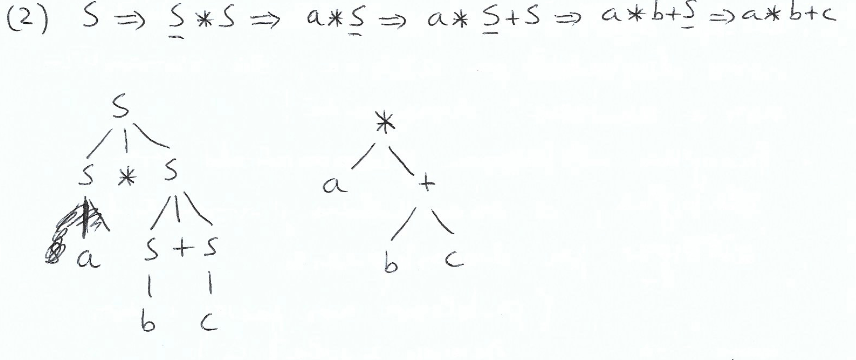 (2) S ⇒ S * S ⇒ a * S ⇒ a * S + S ⇒ a * b + S ⇒ a * b + c
S *
S * S a +
a S + S b c
b c